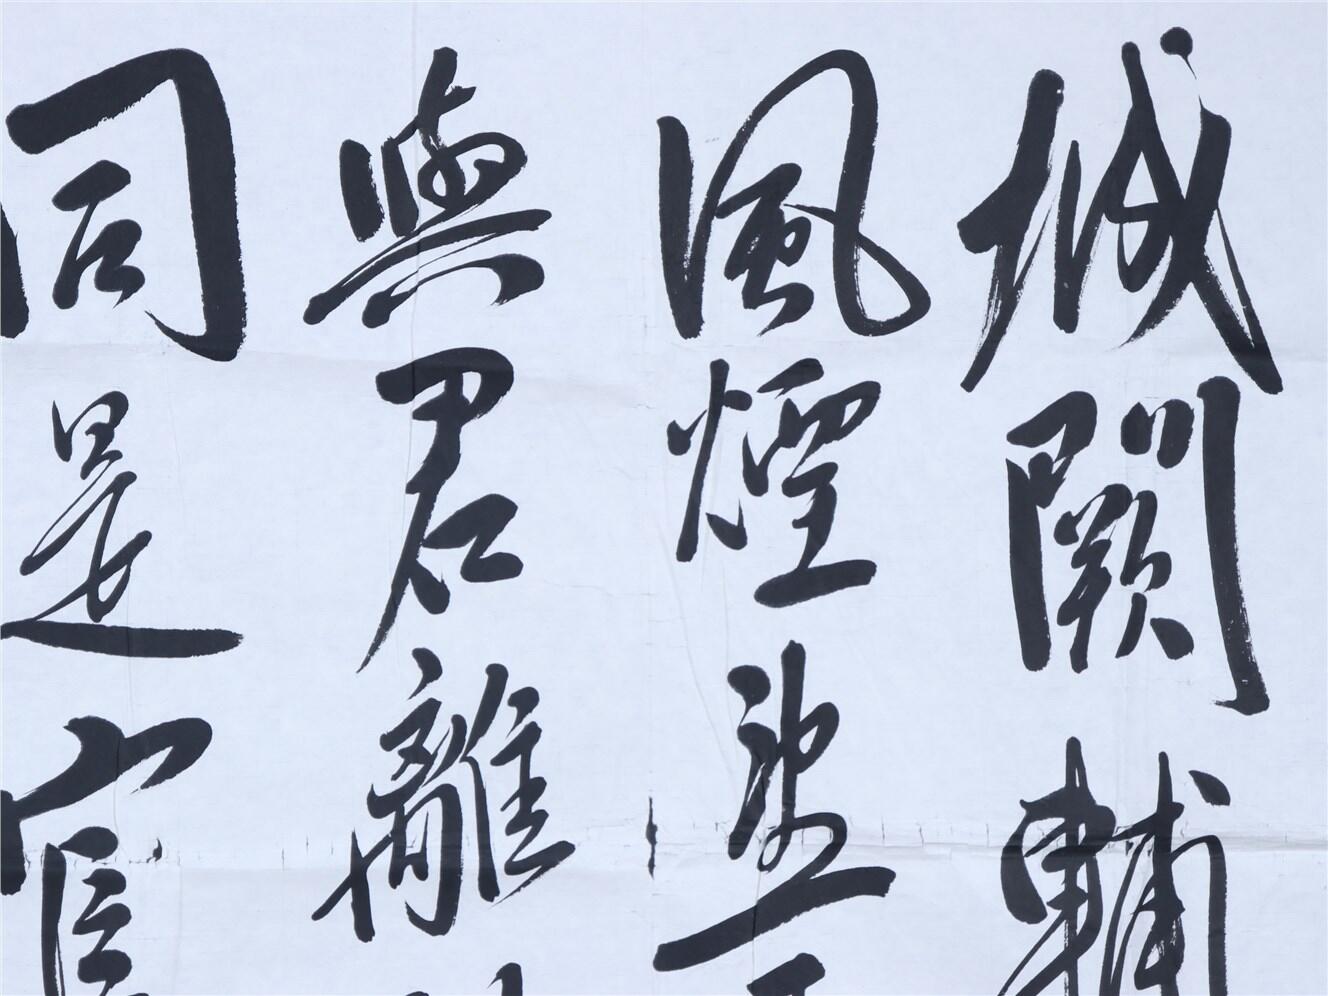 城闕輔
風煙望五
與君離
同是宦